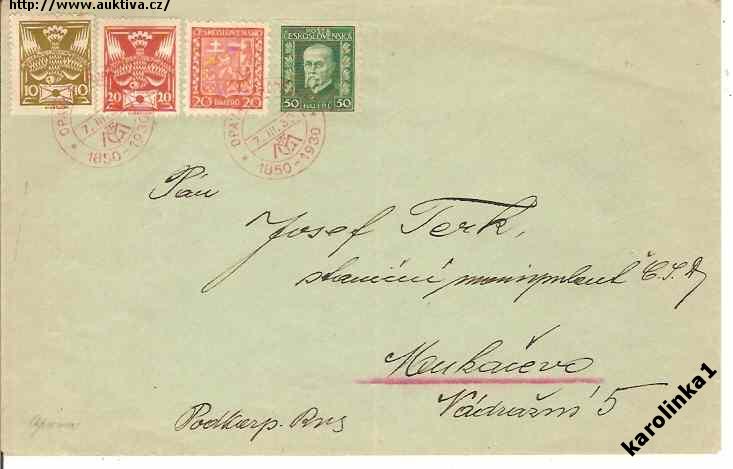 http://www.auktiva.cz/
ČESKOSLOVENSKO
POŠTA
ČESKOSLOVENSKÁ
10 10
20 20
20 HALÉŘŮ 20
50 HALÉŘŮ 50
OPAVA
7.III.30
1850-1930
7.III.30
1850-1930
Pán
Josef Terk,
staniční manipulant Č.S.D
Mukačevo
Nádražní 5
Podkarp. Rus
karolinka1